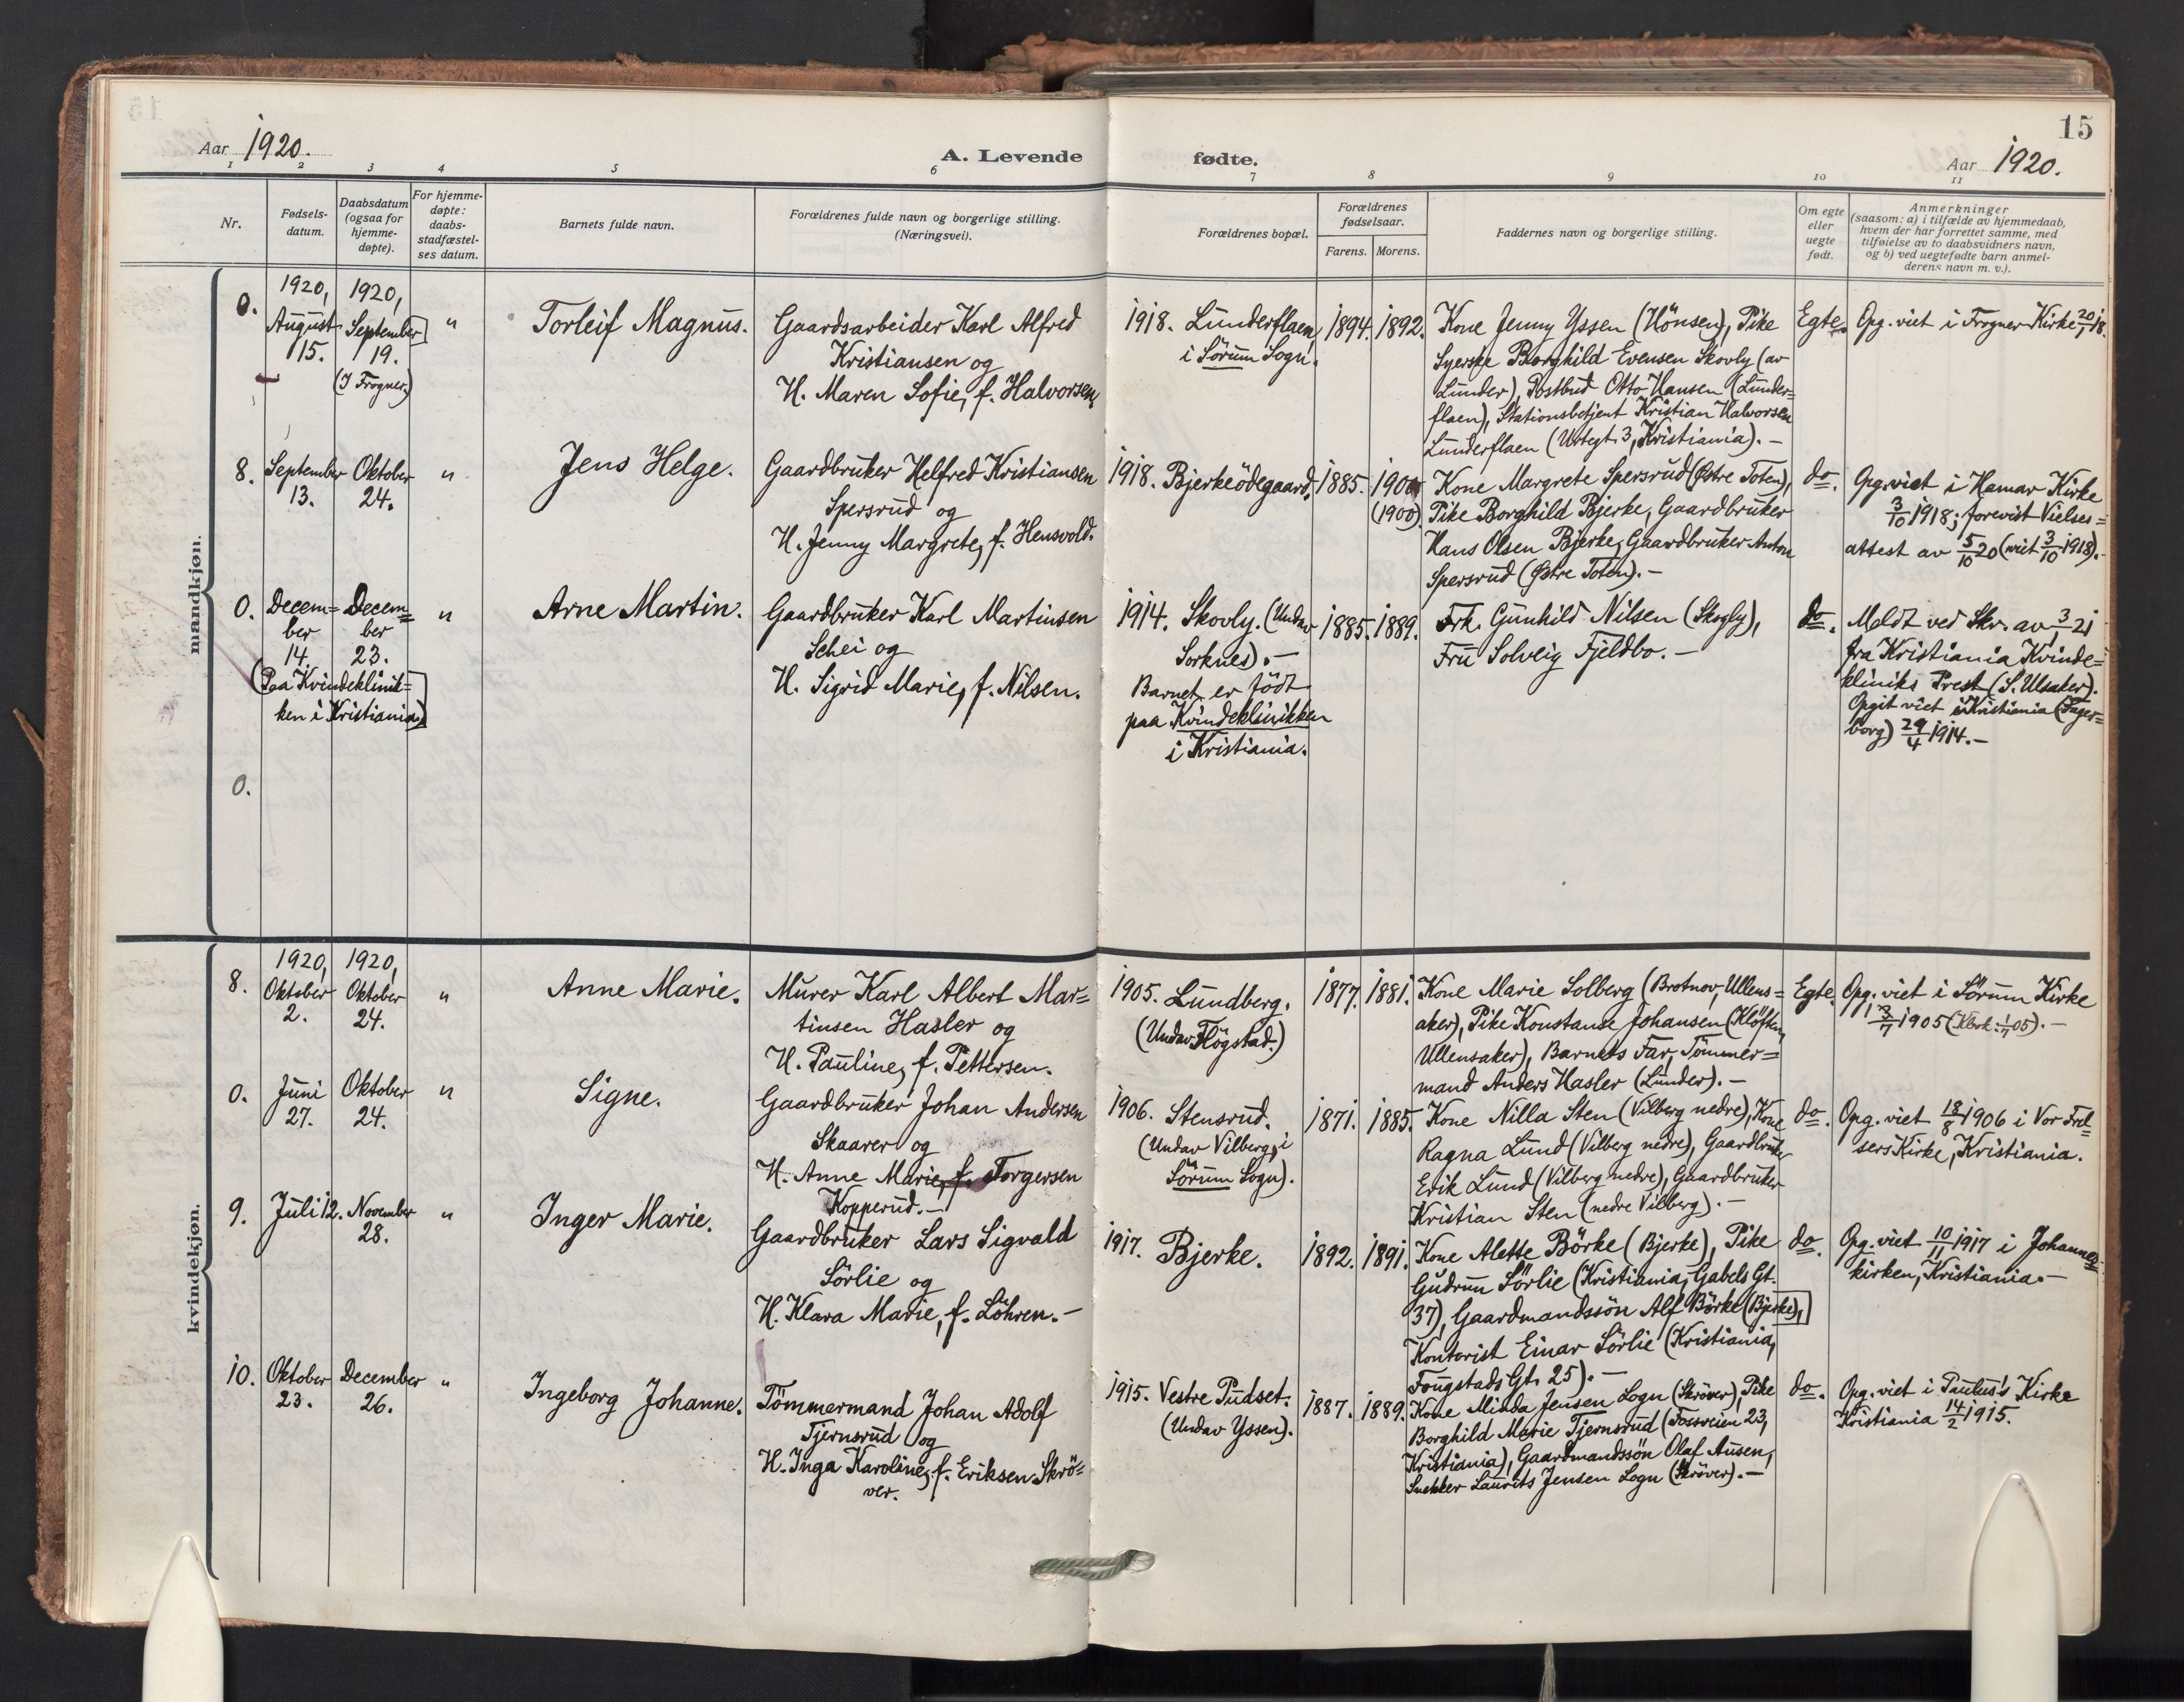 15
Aar 1920.
A. Levende fødte.
Aar 1920.
1 2 3 4 5 6 7 8 9 10 11
Nr.
Fødsels-
datum.
Daabsdatum
(ogsaa for
hjemme-
døpte).
For hjemme-
døpte:
daabs-
stadfæstel-
ses datum.
Barnets fulde navn.
Forældrenes fulde navn og borgerlige stilling.
(Næringsvei).
Forældrenes bopæl.
Forældrenes
fødselsaar.
Farens. Morens.
Faddernes navn og borgerlige stilling.
Om egte
eller
uegte
født.
Anmerkninger
(saasom: a) i tilfælde av hjemmedaab,
hvem der har forrettet samme, med
tilføielse av to daabsvidners navn,
og b) ved uegtefødte barn anmel-
derens navn m. v.).
mandkjøn.
0.
1920,
August
15.
1920,
September
19.
(I Frogner.)
"
Torleif Magnus.
Gaardsarbeider Karl Alfred
Kristiansen og
H. Maren Sofie, f. Halvorsen,
1918. Lunderflaen,
i Sörum Sogn.
1894. 1892.
Kone Jenny Yssen (Hönsen), Pike
Syerske Borghild Evensen Skovly (av
Lunder), Postbud Otto Hansen (Lunder-
flaen), Stationsbetjent Kristian Halvorsen
Lunderflaen (Urtegt. 3, Kristiania). —
Egte.
Opg. viet i Frogner Kirke 20/1 18.
8.
September
13.
Oktober
24.
"
Jens Helge.
Gaardbruker Helfred Kristiansen
Spersrud og
H. Jenny Margrete, f. Hensvold.
1918. Bjerkeödegaard.
1885. 1900
(1900).
Kone Margrete Spersrud (Østre Toten),
Pike Borghild Bjerke, Gaardbruker
Hans Olsen Bjerke, Gaardbruker Anton
Spersrud (Østre Toten). —
do.
Opg. viet i Hamar Kirke
3/10 1918; forevist Vielses=
attest av 5/10 20 (viet 3/10 1918). -
0.
Decem=
ber
14.
(Paa Kvindeklinik=
ken i Kristiania.)
Decem=
ber
23.
"
Arne Martin.
Gaardbruker Karl Martinsen
Schei og
H. Sigrid Marie, f. Nilsen.
1914. Skovly. (Undav
Sorknes). —
Barnet er födt
paa Kvindeklinikken
i Kristiania.
1885. 1889.
Frk. Gunhild Nilsen (Skogly),
Fru Solveig Fjeldbo. —
do.
Meldt ved Skr. av 3/1 21
fra Kristiania Kvinde=
kliniks Prest (S. Ulsaker).
Opgit viet i Kristiania (Fager=
borg) 29/4 1914. —
0.
kvindekjøn.
8.
1920,
Oktober
2.
1920,
Oktober
24.
"
Anne Marie.
Murer Karl Albert Mar=
tinsen Hasler og
H. Pauline, f. Pettersen.
1905. Lundberg.
(Undav Flögstad.)
1877. 1881.
Kone Marie Solberg (Brotnov, Ullens=
aker), Pike Konstanse Johansen (Klöften,
Ullensaker), Barnets Far, Tömmer=
mand Anders Hasler (Lunder). —
Egte.
Opg. viet i Sörum Kirke
1905 (Klbok: 1/7 05). —
0.
Juni
27.
Oktober
24.
"
Signe.
Gaardbruker Johan Andersen
Skaarer og
H. Anne Marie, f. Torgersen
Kopperud. —
1906. Stensrud.
(Undav Vilberg, i
Sörum Sogn).
1871. 1885.
Kone Nilla Sten (Vilberg nedre), Kone
Ragna Lund (Vilberg nedre), Gaardbruker
Erik Lund (Vilberg nedre), Gaardbruker
Kristian Sten (nedre Vilberg). —
do.
Opg. viet 18/8 1906 i Vor Frel=
sers Kirke, Kristiania.
9.
Juli 12.
November
28.
"
Inger Marie.
Gaardbruker Lars Sigvald
Sörlie og
H. Klara Marie, f. Löhren. —
1917. Bjerke.
1892. 1891.
Kone Alette Börke (Bjerke), Pike
Gudrun Sörlie (Kristiania, Gabels Gt.
37), Gaardmandssön Alf Börke (Bjerke),
Kontorist Einar Sörlie (Kristiania,
Fougstads Gt. 25). —
do.
Opg. viet 10/11 1917 i Johannes=
kirken, Kristiania. —
10.
Oktober
23.
December
26.
"
Ingeborg Johanne.
Tömmermand Johan Adolf
Tjernsrud og
H. Inga Karoline, f. Eriksen Skrö=
ver.
1915. Vestre Pudset.
(Undav Yssen).
1887. 1889.
Kone Minda Jensen Logn (Skröver), Pike
Borghild Marie Tjernsrud (Fossveien 23,
Kristiania), Gaardmandssön Olaf Ausen,
Snekker Laurits Jensen Logn (Skröver). —
do.
Opg. viet i Paulus's Kirke
Kristiania 14/2 1915.